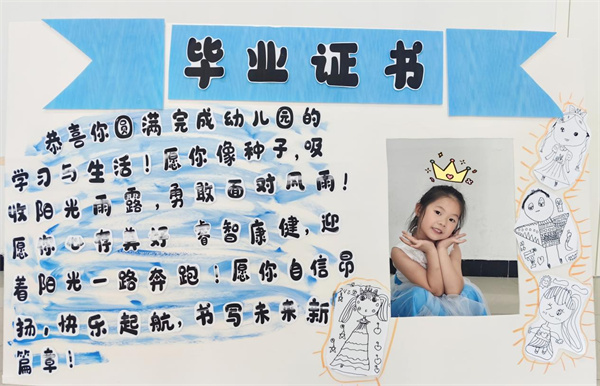 毕业证书
恭喜你圆满完成幼儿园的
学习与生活！愿你像种子，吸
收阳光雨露，勇敢面对风雨！
愿你心存美好 睿智康健，迎
着阳光一路奔跑！愿你自信昂
扬，快乐起航，书写未来新
篇章！